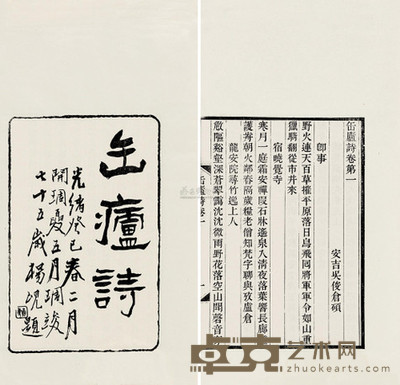 缶廬詩
光緒癸巳春二月
開琱夏五月琱竣
七十五歲楊峴題
缶廬詩卷第一
安吉吳俊倉碩
即事
野火連天百草摧平原落日鳥飛回將軍軍令如山重
獵騎翻從市井來
宿曉覺寺
寒月一庭霜安禪叚石牀遙泉入清夜落葉響長廊
朝火鄰舂隔歲糧老僧知梵字聊與攷盧倉
龍安院尋竹逸上人
谿壑深蒼翠靄沈沈微雨野花落空山聞磬音
缶廬詩卷一
卓克艺术网
www.zhuokearts.com